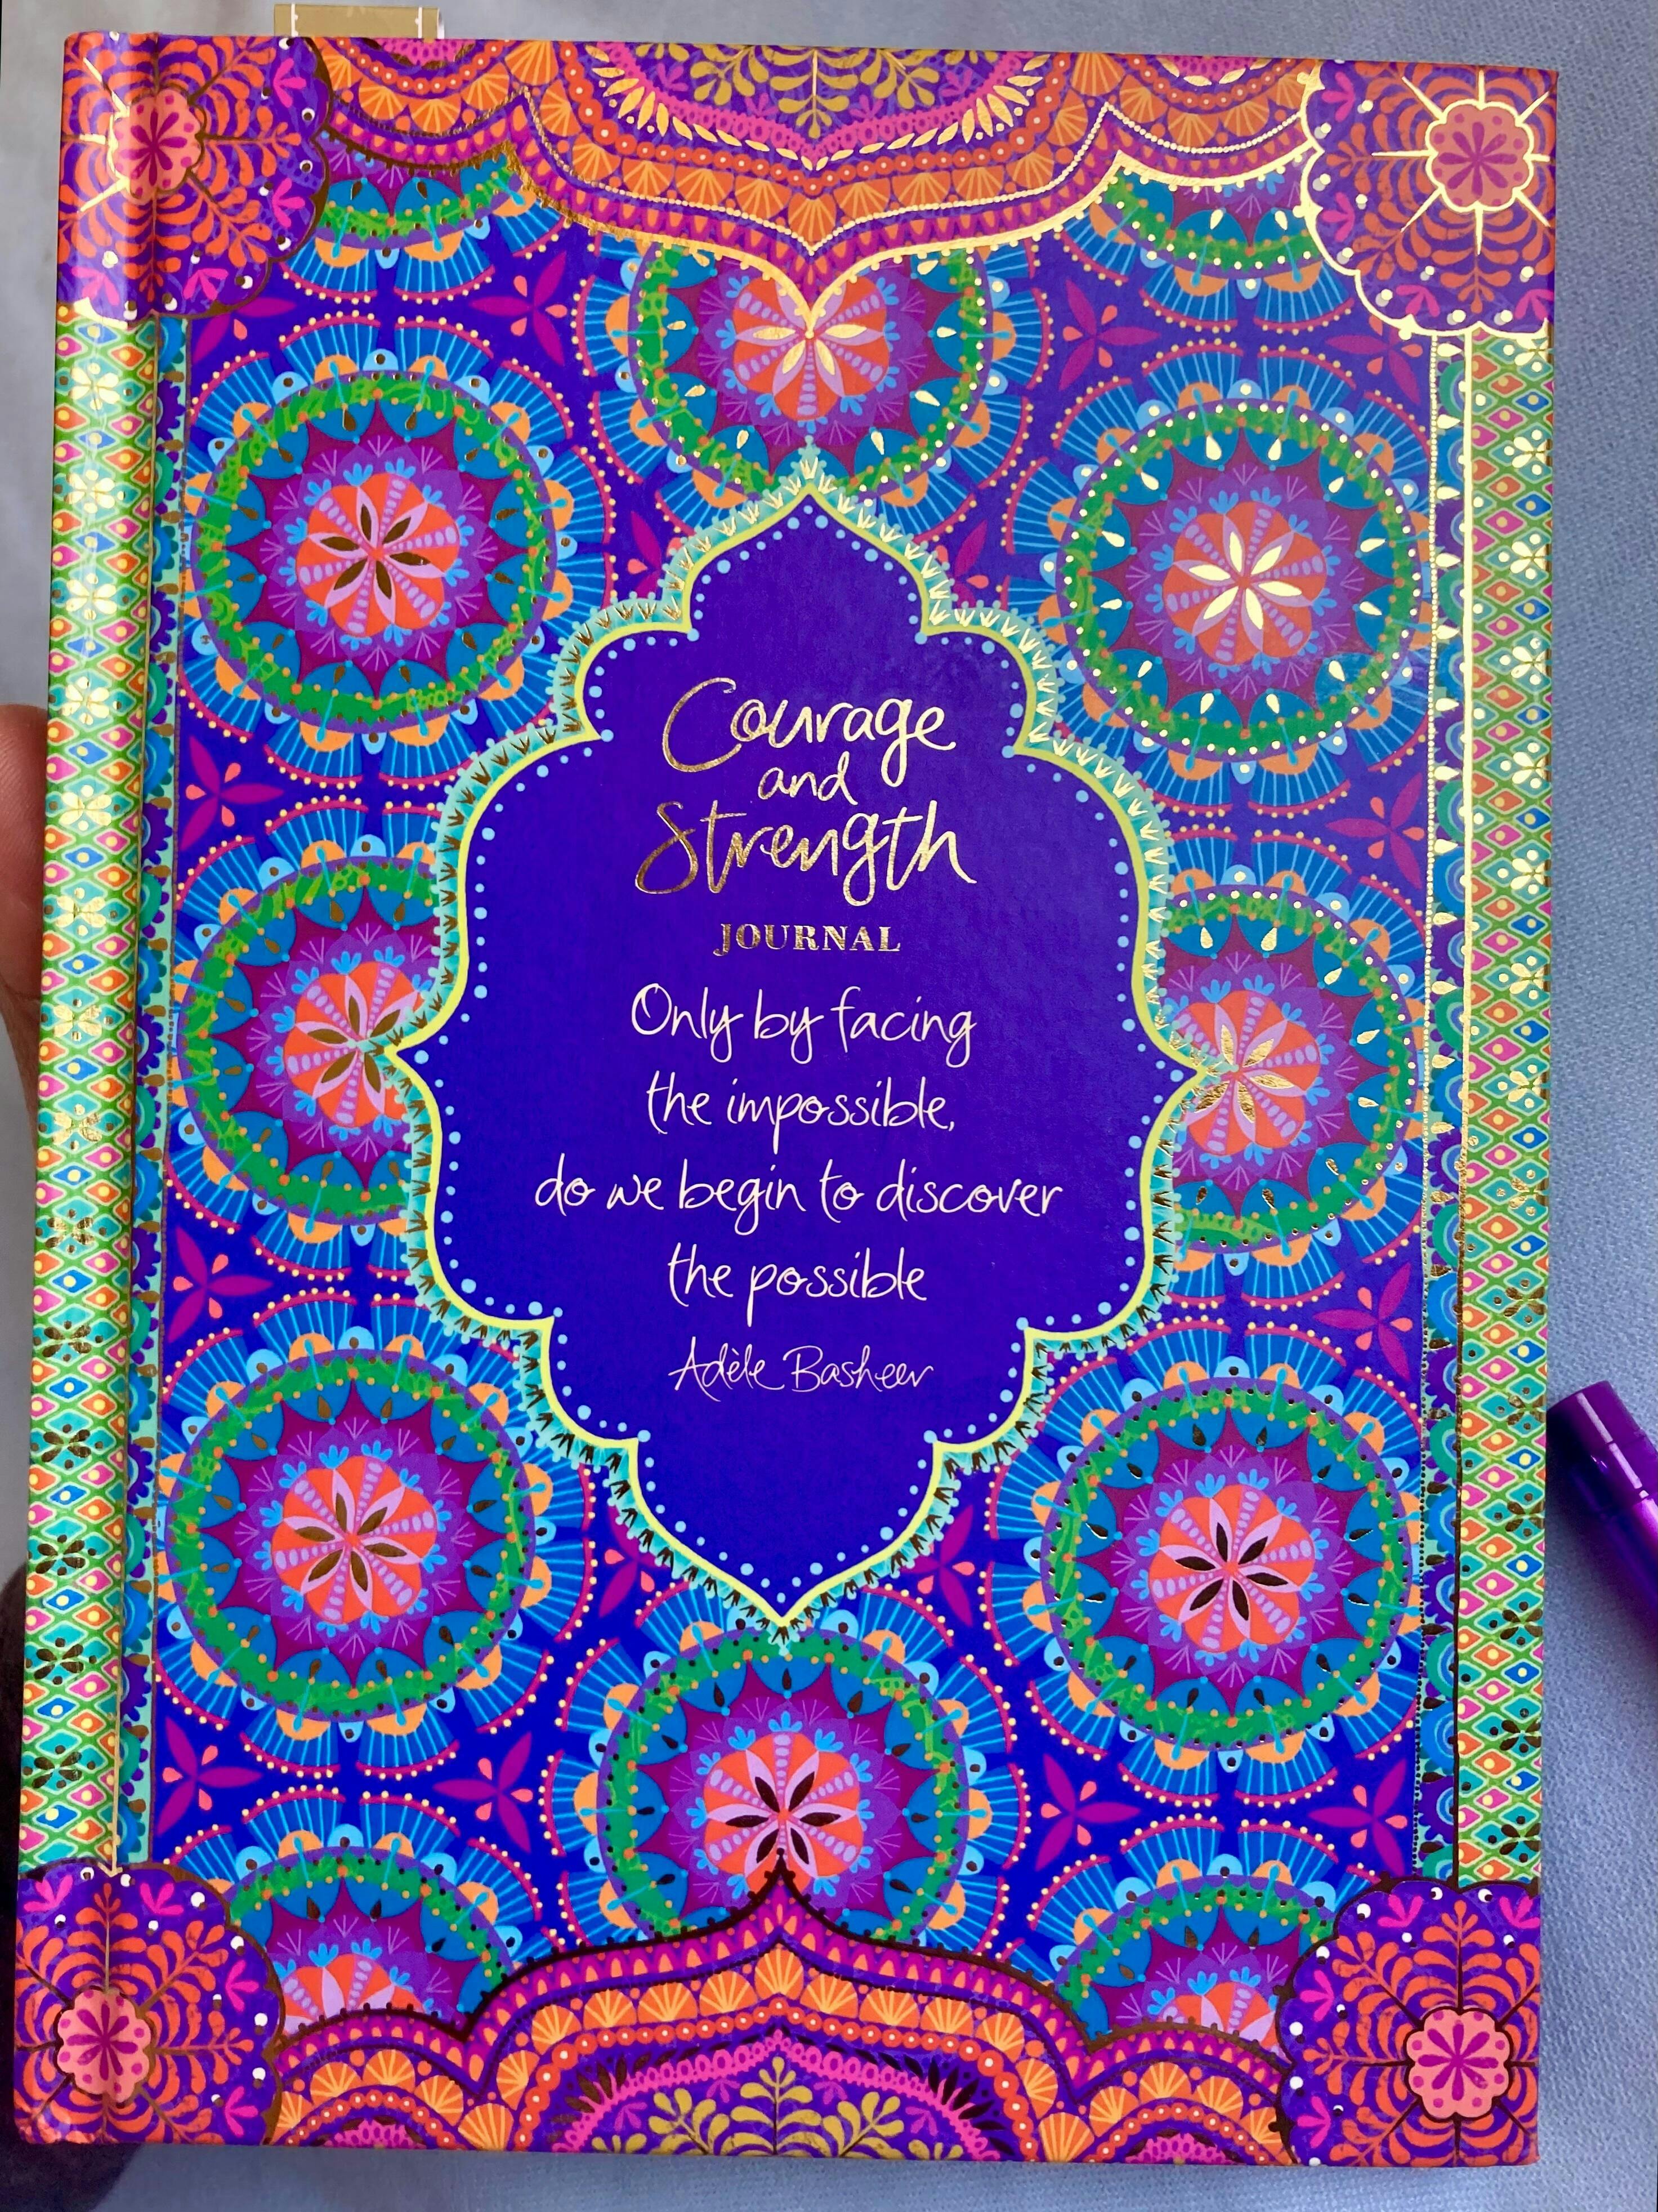 Courage
and
Strength
JOURNAL
Only by facing
the impossible,
do we begin to discover
the possible
Adèle Basheer